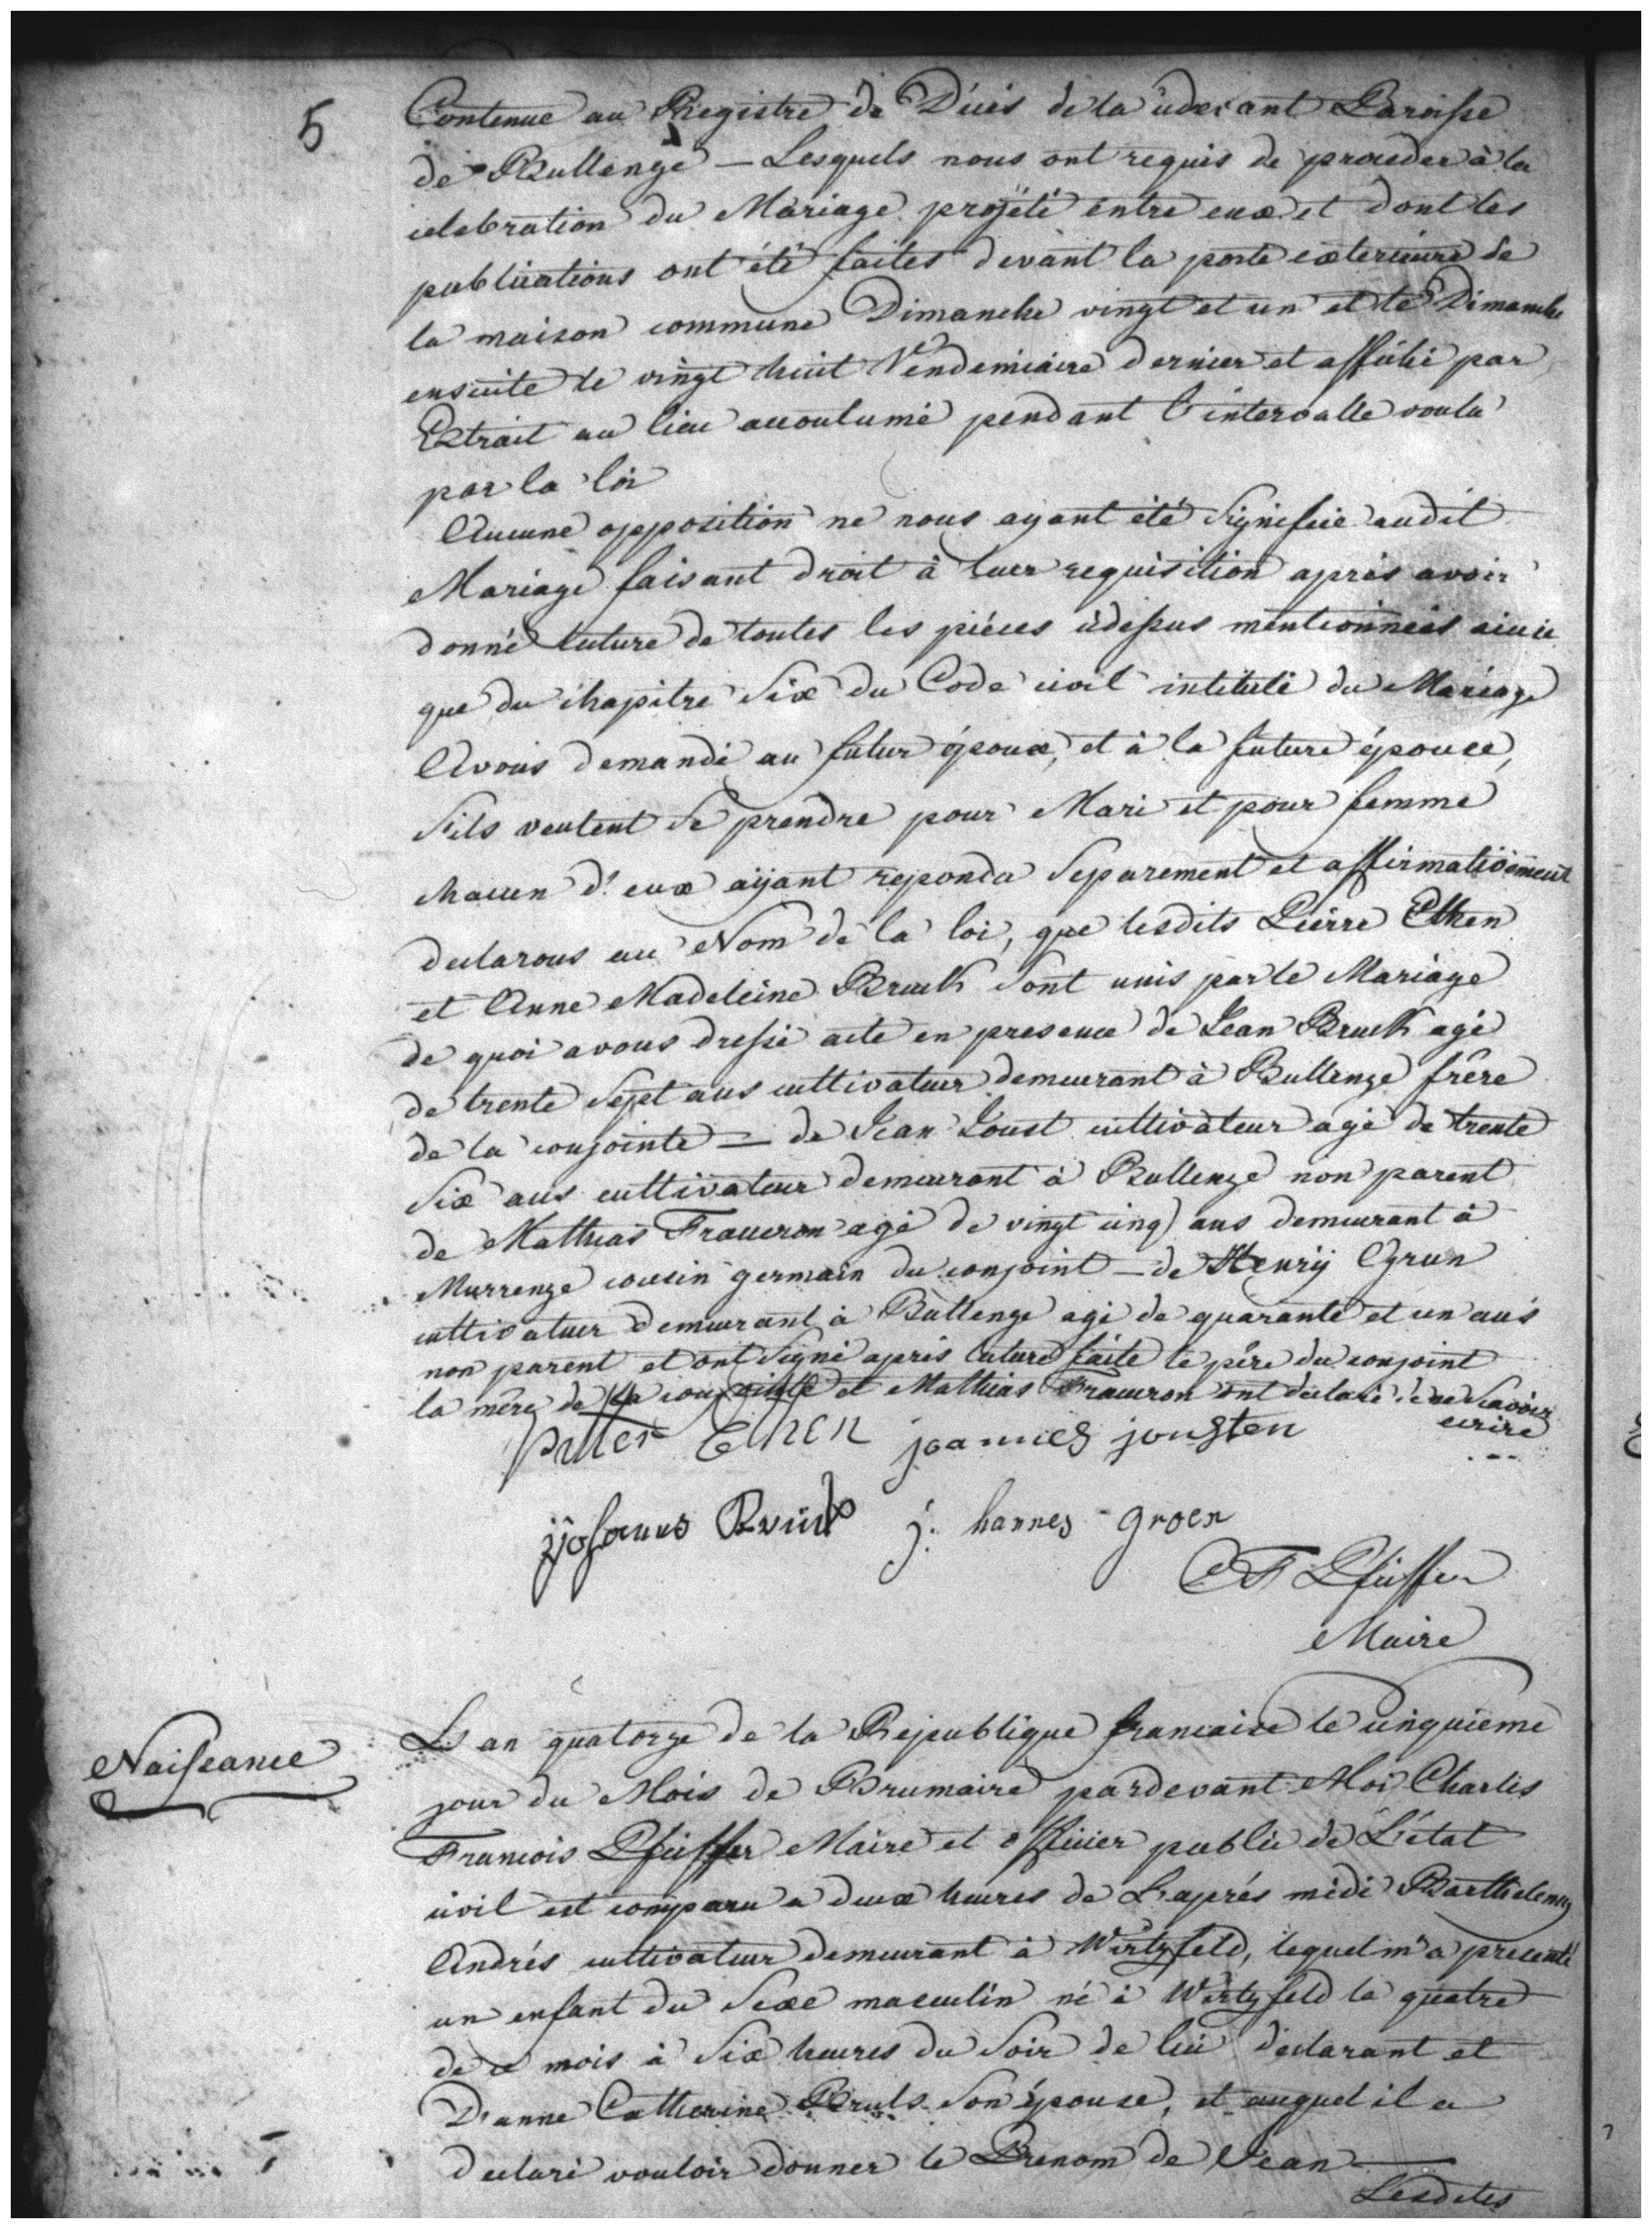 5
Contenue au Registre de Décés de la cidevant Paroisse
de Bullenge — Lesquels nous ont requis de proceder à la
celebration du Mariage projété entre eux et dont les
publications ont été faites devant la porte exterieure de
la maison commune Dimanche vingt et un et le Dimanche
ensuite le vingt huit Vendemiaire dernier et affiché par
Extrait au lieu accoutumé pendant l'intervalle voulu
par la loi
Aucune opposition ne nous ayant eté Signifiée audit
Mariage faisant droit à leur requisition après avoir
donné lecture de toutes les piéces cidessus mentionneés
que du chapitre Six du Code civil intitulé du Mariage
Avons demandé au futur époux, et à la future épouse,
Sils veulent Se prendre pour Mari et pour femme
chacun d'eux aÿant repondu Separement et affirmativement
declarons au Nom de la loi, que lesdits Pierre Ethen
et Anne Madeleine Bruck Sont unis par le Mariage
de quoi avons dressé acte en presence de Jean Bruck agé
de trente Sept ans cultivateur demeurant à Bullenge frêre
de la conjointe — de Jean Joust cultivateur agé de trente
Six ans cultivateur demeurant à Bullenge non parent
de Mathias Fraueron agé de vingt cinq ans demeurant à
Murrenge cousin germain du conjoint — de Henrÿ Grun
cultivateur demeurant à Bullenge agé de quarante et un ans
non parent et ont Signé après lecture faite le pére du conjoint
la mêre de la conjointe et Mathias Fraueron ont declaré ne Savoir
ecrire
Petter Ethen joannes jousten
Johannes Brück j. hannes groen
C F Pfeiffer
Maire
Naissance
L'an quatorze de la Republique francaise le cinquieme
jour du Mois de Brumaire pardevant Moi Charles
Francois Pfeiffer Maire et officier public de L'état
civil est comparu a deux heures de L'aprés midi Barthelemy
Andrés cultivateur demeurant à Wirtzfeld, lequel m'a presenté
un enfant du Sexe masculin né à Wirtzfeld le quatre
de ce mois à Six heures du Soir de lui declarant et
D'anne Catherine Bruls Son épouse, et auquel il a
declaré vouloir donner le Prenom de Jean —
Lesdites